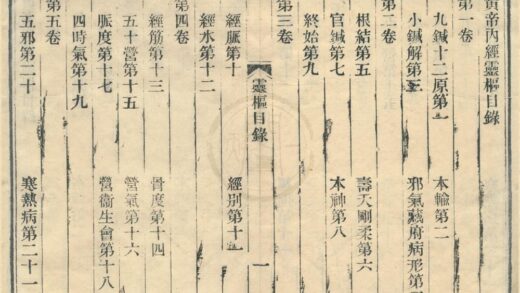 黄帝內經靈樞目錄
第一卷
九鍼十二原第一 本輸第二
小鍼解第三 邪氣藏府病形第
第二卷
根結第五 壽夭剛柔第六
官鍼第七 本神第八
終始第九
第三卷
靈樞目錄 一
經脈第十 經別第十一
經水第十二
第四卷
經筋第十三 骨度第十四
五十營第十五 營氣第十六
脈度第十七 營衞生會第十八
四時氣第十九
第五卷
五邪第二十 寒熱病第二十一